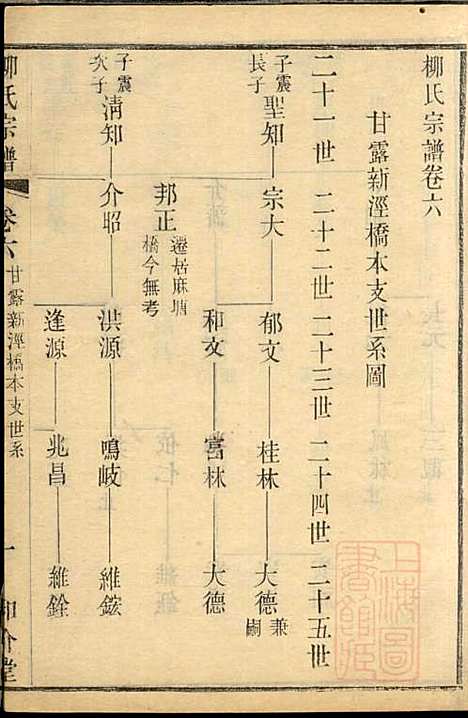 柳氏宗譜卷六
甘露新涇橋本支世系圖
二十一世 二十二世 二十三世 二十四世 二十五世
子震長子 聖知 宗大 郁文 桂林 大德 兼嗣
和文 富林 大德
邦正 遷居麻塘橋今無考
子震次子 清知 介昭 洪源 鳴岐 維鋐
逢源 兆昌 維銓
柳氏宗譜 卷六 甘露新涇橋本支世系 一
上海圖書館藏